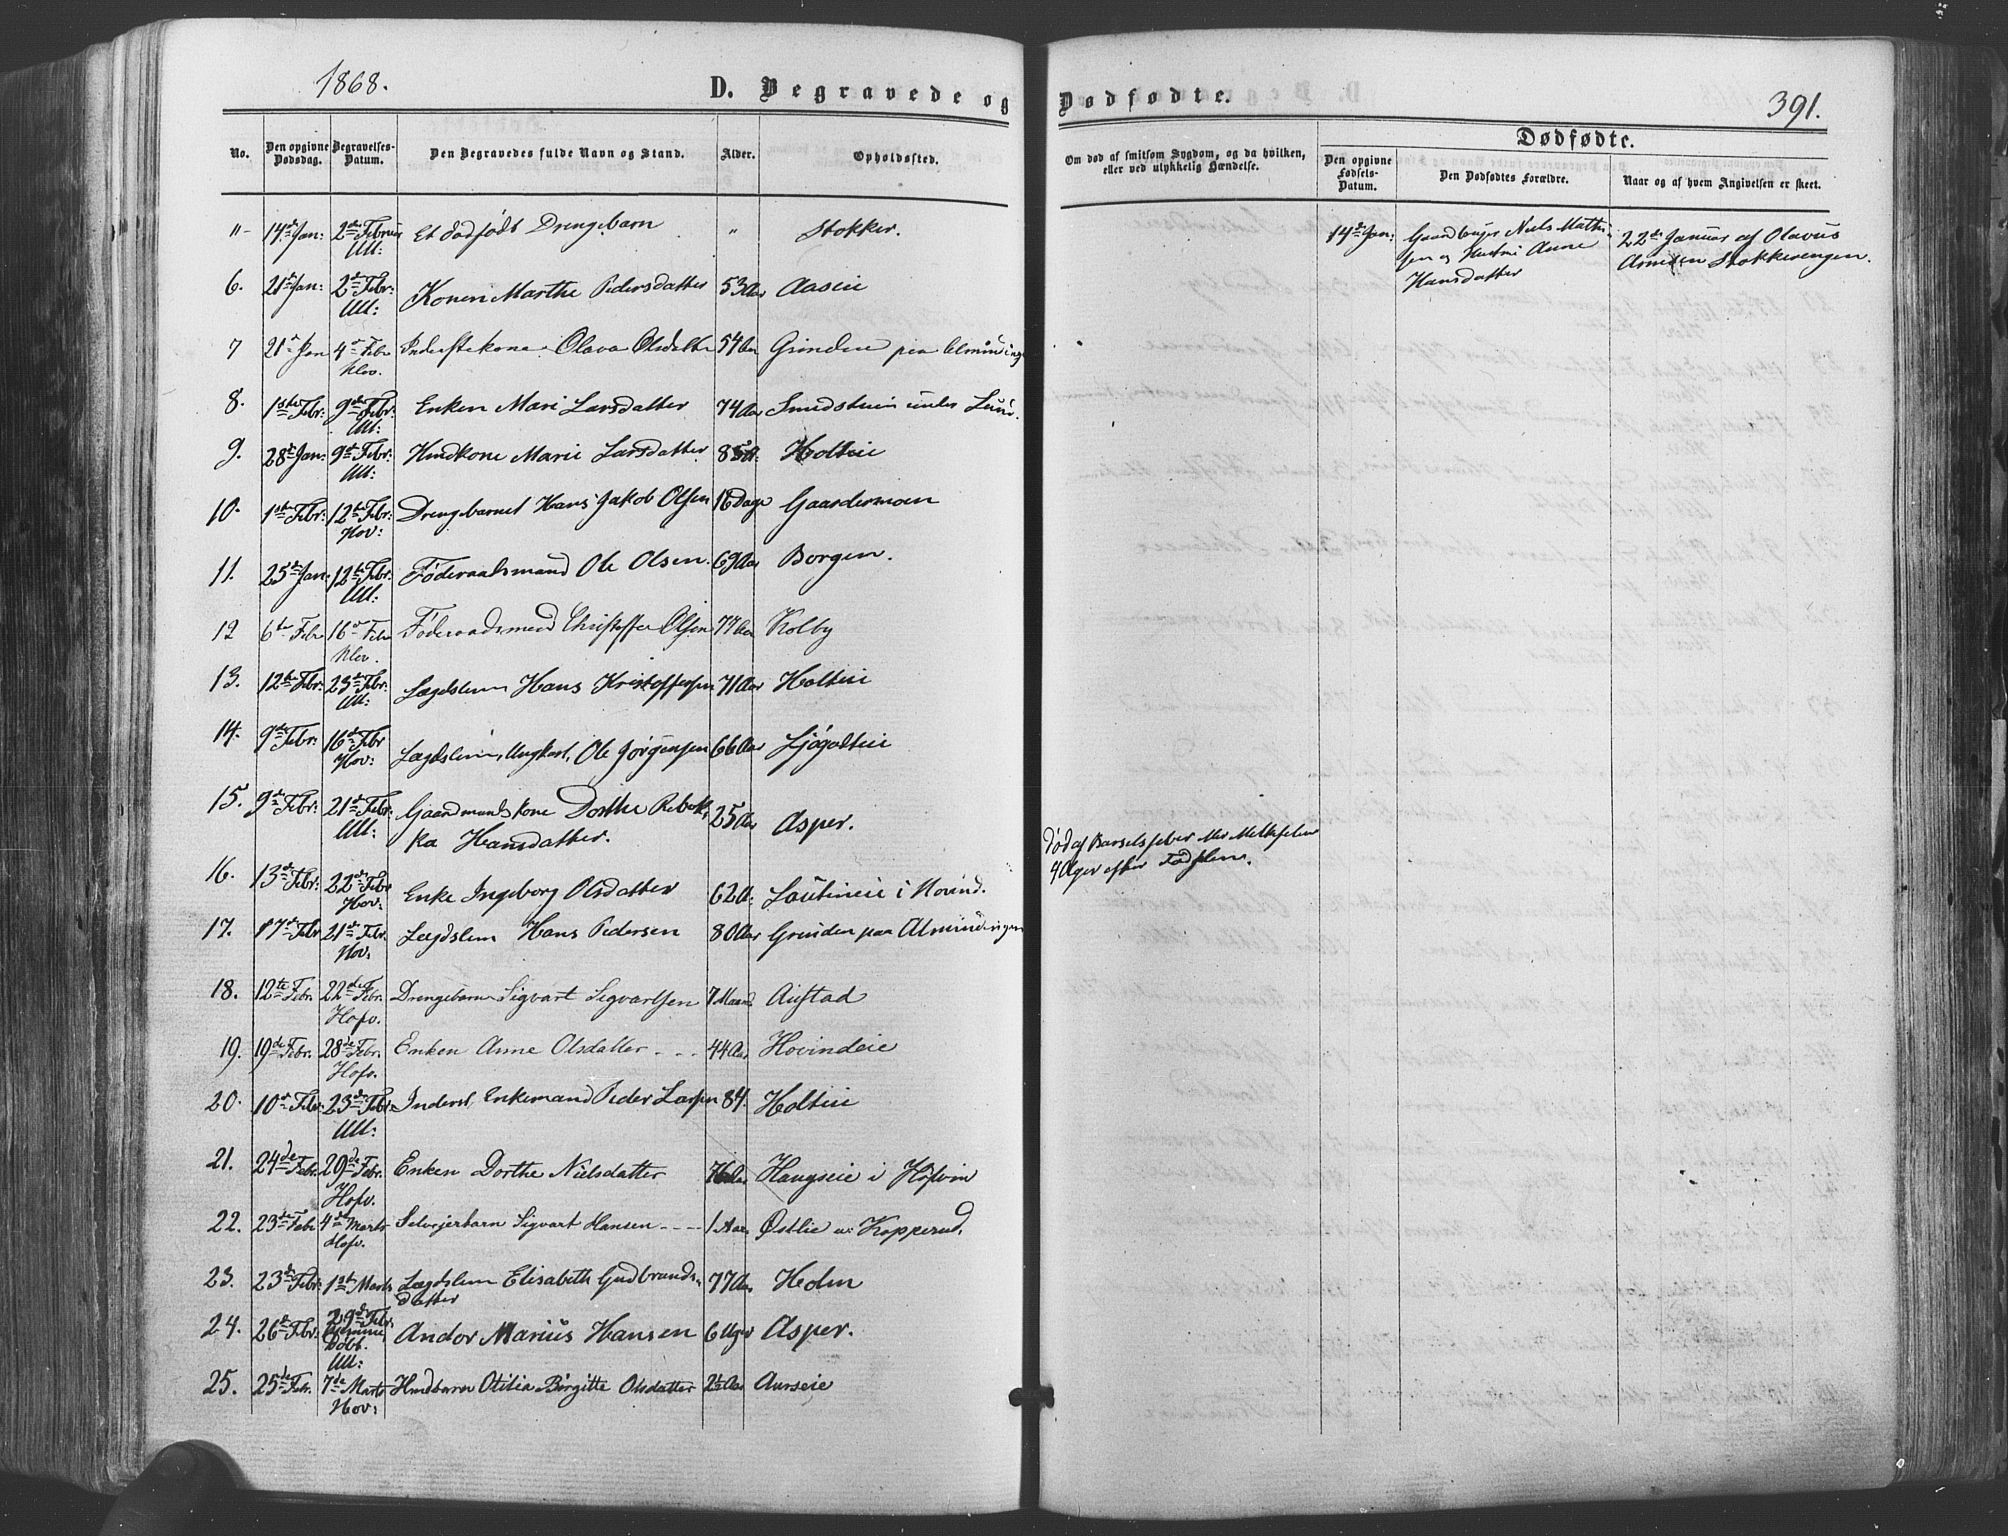 1868.
D. Begravede og Dødfødte.
391.
No.
Den opgivne Dødsdag.
Begravelses-Datum.
Den Begravedes fulde Navn og Stand.
Alder.
Opholdssted.
Om død af smitsom Sygdom, og da hvilken,
eller ved ulykkelig Hændelse.
Dødfødte.
Den opgivne Fødsels-Datum.
Den Dødfødtes Forældre.
Naar og af hvem Angivelsen er skeet.
"- 14de Jan: 2den Februar Et dødfødt Drengebarn " Stokker. 14de Jan: Gaardbruger Niels Mathi- 22de Januar af Olavus
Ull: sen og Hustru Anne Arnesen Stokkerengen.
Hansdatter
6. 21de Jan: 2den Febr: Konen Marthe Pedersdatter 53 Aar Aaseie
Ull:
7 21de Jan 4de Febr Inderstekone Olava Olsdatter 54 Aar Grinden paa Almindinge
Hov.
8. 1ste Febr: 9de Febr: Enken Mari Larsdatter 74 Aar Smedstuen under Lund.
Ull:
9. 28de Jan: 9de Febr: Huskone Marie Larsdatter 85 A: Holteie
Ull:
10. 1ste Febr: 12te Febr: Drengebarnet Hans Jakob Olsen 16 Dage Gaardermoen
Hov:
11. 25de Jan: 12te Febr: Føderaadsmand Ole Olsen. 69 Aar Borgen.
Ull:
12 6te Febr 16de Febr Føderaadsmand Christoffer Olsen 77 Aar Kolby
Hov.
13. 12te Febr: 23de Febr: Lægdslem Hans Kristoffersen 71 Aar Holteie
Ull:
14. 9de Febr: 16de Febr Lægdslem, Ungkarl, Ole Jørgensen 66 Aar Ljøgodteie
Hov:
15. 9de Febr: 21de Febr: Gaardmandskone Dorthe Rebek- 25 Aar Asper. Død af Barselsfeber eller Melkefeber
Ull: ka Hansdatter. 4 Uger efter Fødslen.
16. 13de Febr: 22de Febr Enke Ingeborg Olsdatter 62 A: Laukineie i Hovind.
Hov:
17. 17de Febr 21de Febr. Lægdslem Hans Pedersen 80 Aar Grinden paa Almindingen
Hov.
18. 12te Febr. 22de Febr. Drengebarn Sigvart Sigvartsen 7 Maand. Austad
Hofv.
19. 19de Febr. 28de Febr. Enken Anne Olsdatter - - - 44 Aar Hovindeie
Hofv.
20. 10de Febr 23de Febr. Inderst, Enkemand Peder Larsen 84. Holteie
Ull:
21. 24de Febr. 29de Febr. Enken Dorthe Nielsdatter 76 Aar Haugseie i Hofvin
Hofv.
22. 23de Febr 4de Marts Selveierbarn Sigvart Hansen - - - - 1 Aar Østlie u. Kopperud.
Hofv.
23. 23de Febr: 1ste Marts Lægdslem Elisabeth Gudbrands- 77 Aar Holm
datter
24. 26de Febr. 29de Febr. Andor Marius Hansen 6 Uger Asper.
Hjemme
Døbt.
Ull:
25. 25de Febr. 7de Marts Husbarn Otilia Birgitte Olsdatter 2½ Aar Aurseie
Hov: